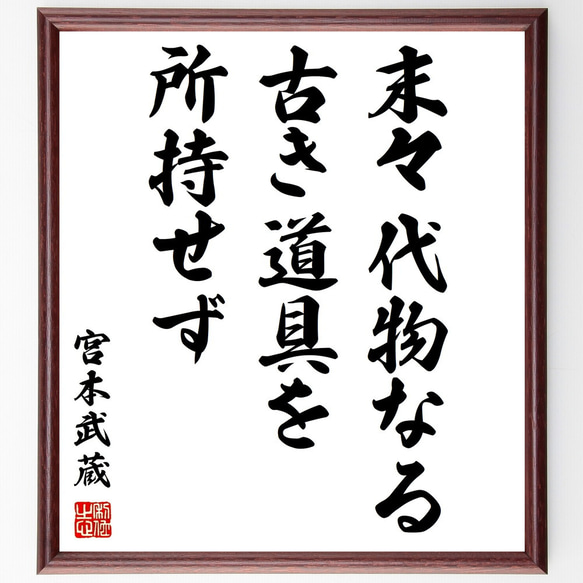 末々代物なる
古き道具を
所持せず
宮本武蔵